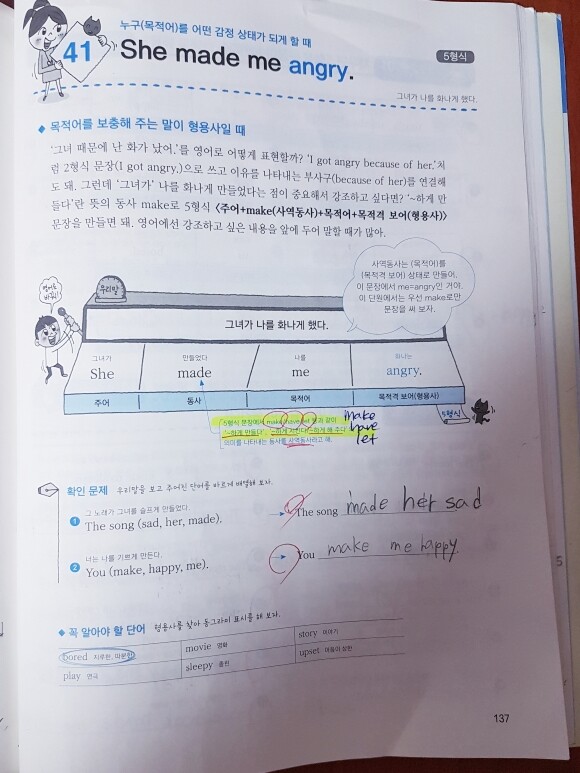 누구(목적어)를 어떤 감정 상태가 되게 할 때
41 She made me angry. 5형식
그녀가 나를 화나게 했다.
◆ 목적어를 보충해 주는 말이 형용사일 때
'그녀 때문에 난 화가 났어.'를 영어로 어떻게 표현할까? 'I got angry because of her.'처
럼 2형식 문장(I got angry.)으로 쓰고 이유를 나타내는 부사구(because of her)를 연결해
도 돼. 그런데 '그녀가' 나를 화나게 만들었다는 점이 중요해서 강조하고 싶다면? '~하게 만
들다'란 뜻의 동사 make로 5형식 〈주어+make(사역동사)+목적어+목적격 보어(형용사)〉
문장을 만들면 돼. 영어에선 강조하고 싶은 내용을 앞에 두어 말할 때가 많아.
사역동사는 (목적어)를
(목적격 보어) 상태로 만들어.
이 문장에서 me=angry인 거야.
이 단원에서는 우선 make로만
문장을 써 보자.
영어로
바꿔!
우리말
그녀가 나를 화나게 했다.
그녀가 만들었다 나를 화나는
She made me angry.
주어 동사 목적어 목적격 보어(형용사)
5형식
5형식 문장에서 make, have, let 등과 같이
'~하게 만들다', '~하게 시킨다', '~하게 해 주다'
의미를 나타내는 동사를 사역동사라고 해.
make
have
let
확인 문제 우리말을 보고 주어진 단어를 바르게 배열해 보자.
그 노래가 그녀를 슬프게 만들었다.
1 The song (sad, her, made). → The song made her sad
너는 나를 기쁘게 만든다.
2 You (make, happy, me). → You make me happy
◆ 꼭 알아야 할 단어 형용사를 찾아 동그라미 표시를 해 보자.
bored 지루한, 따분한 movie 영화 story 이야기
play 연극 sleepy 졸린 upset 마음이 상한
137